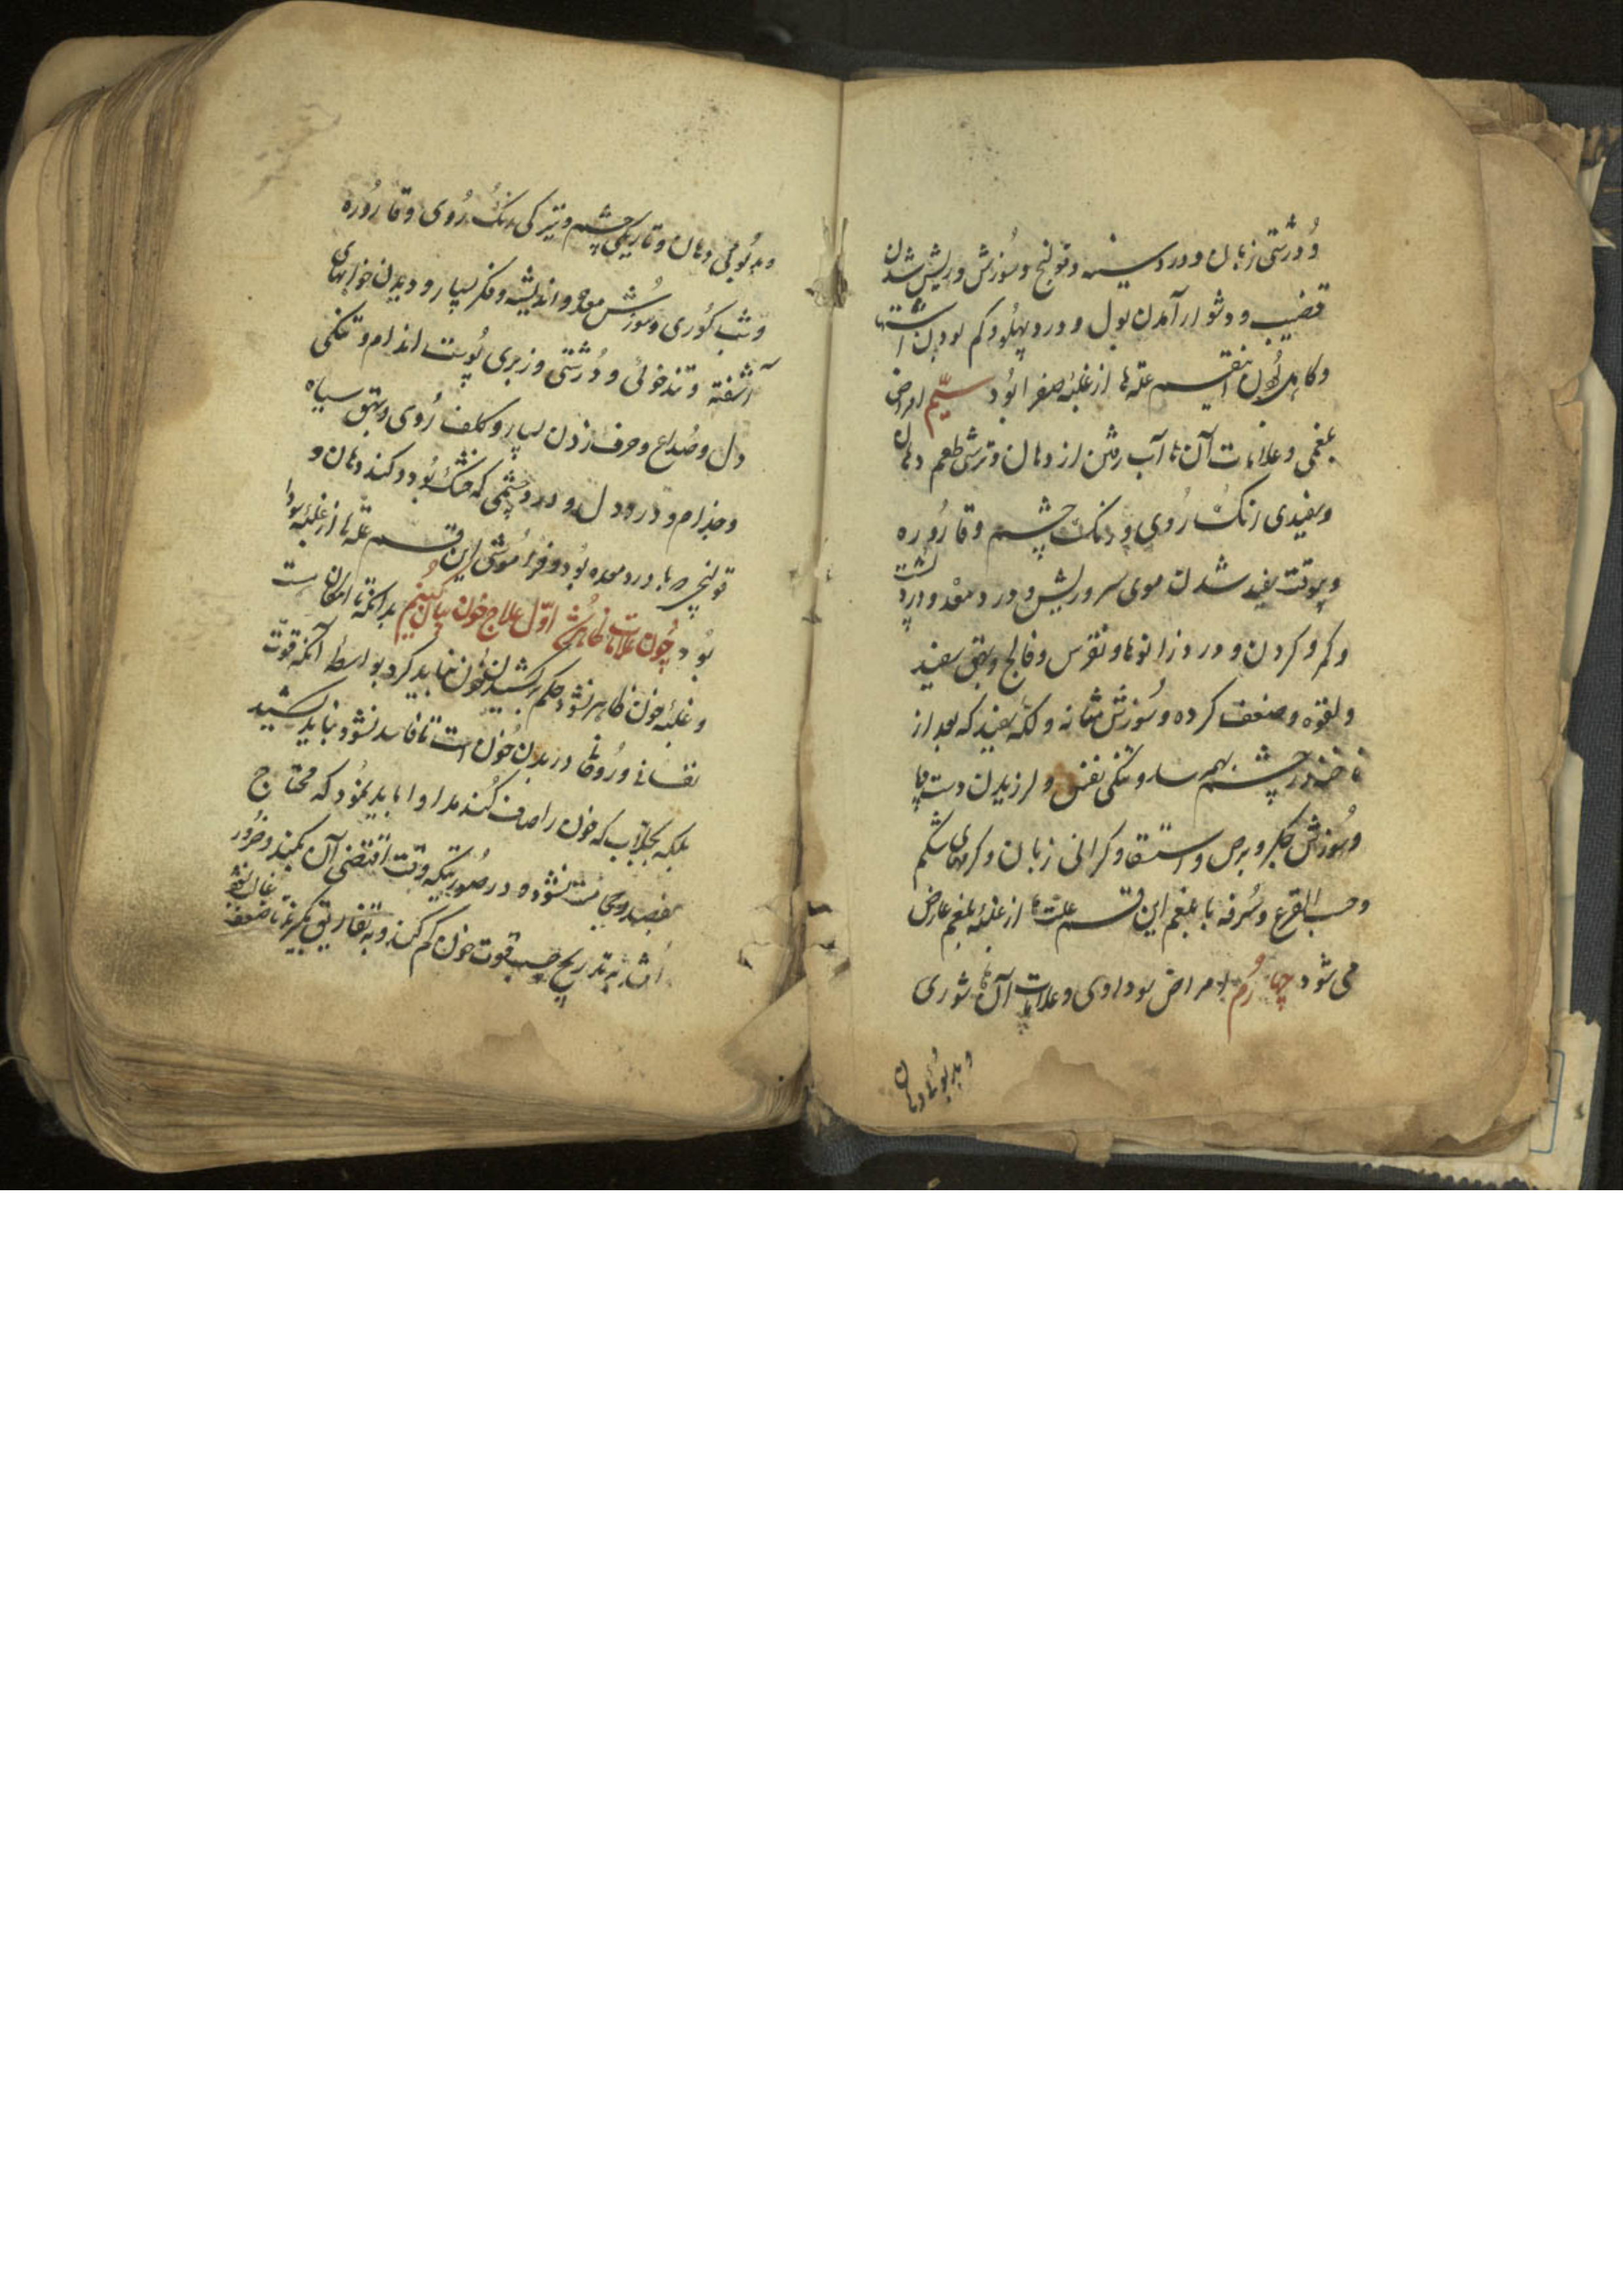 و درشتی زبان و درد سینه و قولنج و سوزش و ریش شدن
قضیب و دشوار آمدن بول و درد پهلو و کم بودن اشتها
و کاهل بودن اینقسم علّه‌ها از غلبهٔ صفرا بود سیّم امراض
بلغمی و علامات آن‌ها آب رفتن از دهان و ترشی طعم دهان
و سفیدی رنگ روی و رنگ چشم و قاروره
و بیوقت سفید شدن موی سر و ریش و درد معده و درد پشت
و کمر و کردن و درد زانوها و نقرس و فالج و بهق سفید
و لقوه و ضعف کرده و سوزش مثانه و لکه سفید که بعد از
ناخنه در چشم بهم رسد و تنگی نفس و لرزیدن دست و پا
و سوزش جگر و برص و استسقا و کرانی زبان و کرمهای شکم
و حب القرع و سرفه با بلغم این قسم علت‌ها از غلبهٔ بلغم عارض
می شود چهارم امراض سوداوی و علامات آن‌ها شوری
و بدبوئی دهان
و بدبوئی دهان و تاریکی چشم و تیرکی رنگ روی و قاروره
و شب کوری و سوزش معده و اندیشه و فکر بسیار و دیدن خوابهای
آشفته و تندخوئی و درشتی و زبری پوست اندام و تنگی
دل و صداع و حرف زدن بسیار و کلف روی و بهق سیاه
و جذام و درد دل و درد چشمی که خشک بود و کند دهان و
قولنجی که با درد معده بود و فراموشی این قسم علّه‌ها از غلبهٔ سودا
بود چون علامات ظاهر شد اوّل علاج خون بیان کنیم بدانکه تا امکان است
و غلبهٔ خون ظاهر نشود حکم بر کشیدن خون نباید کرد بواسطهٔ آنکه قوّت
نفسانی و روحانی در بدن خون است تا فاسد نشود نباید کشید
بلکه بجلاّب که خون را صاف کند مداوا باید نمود که محتاج
بفصد و حجامت نشود و در صورتیکه وقت اقتضی آن بکند و ضرور
باشد به تدریج حسب قوت خون کم کنند و به تفاریق بگیرند تا ضعف غالب نشود